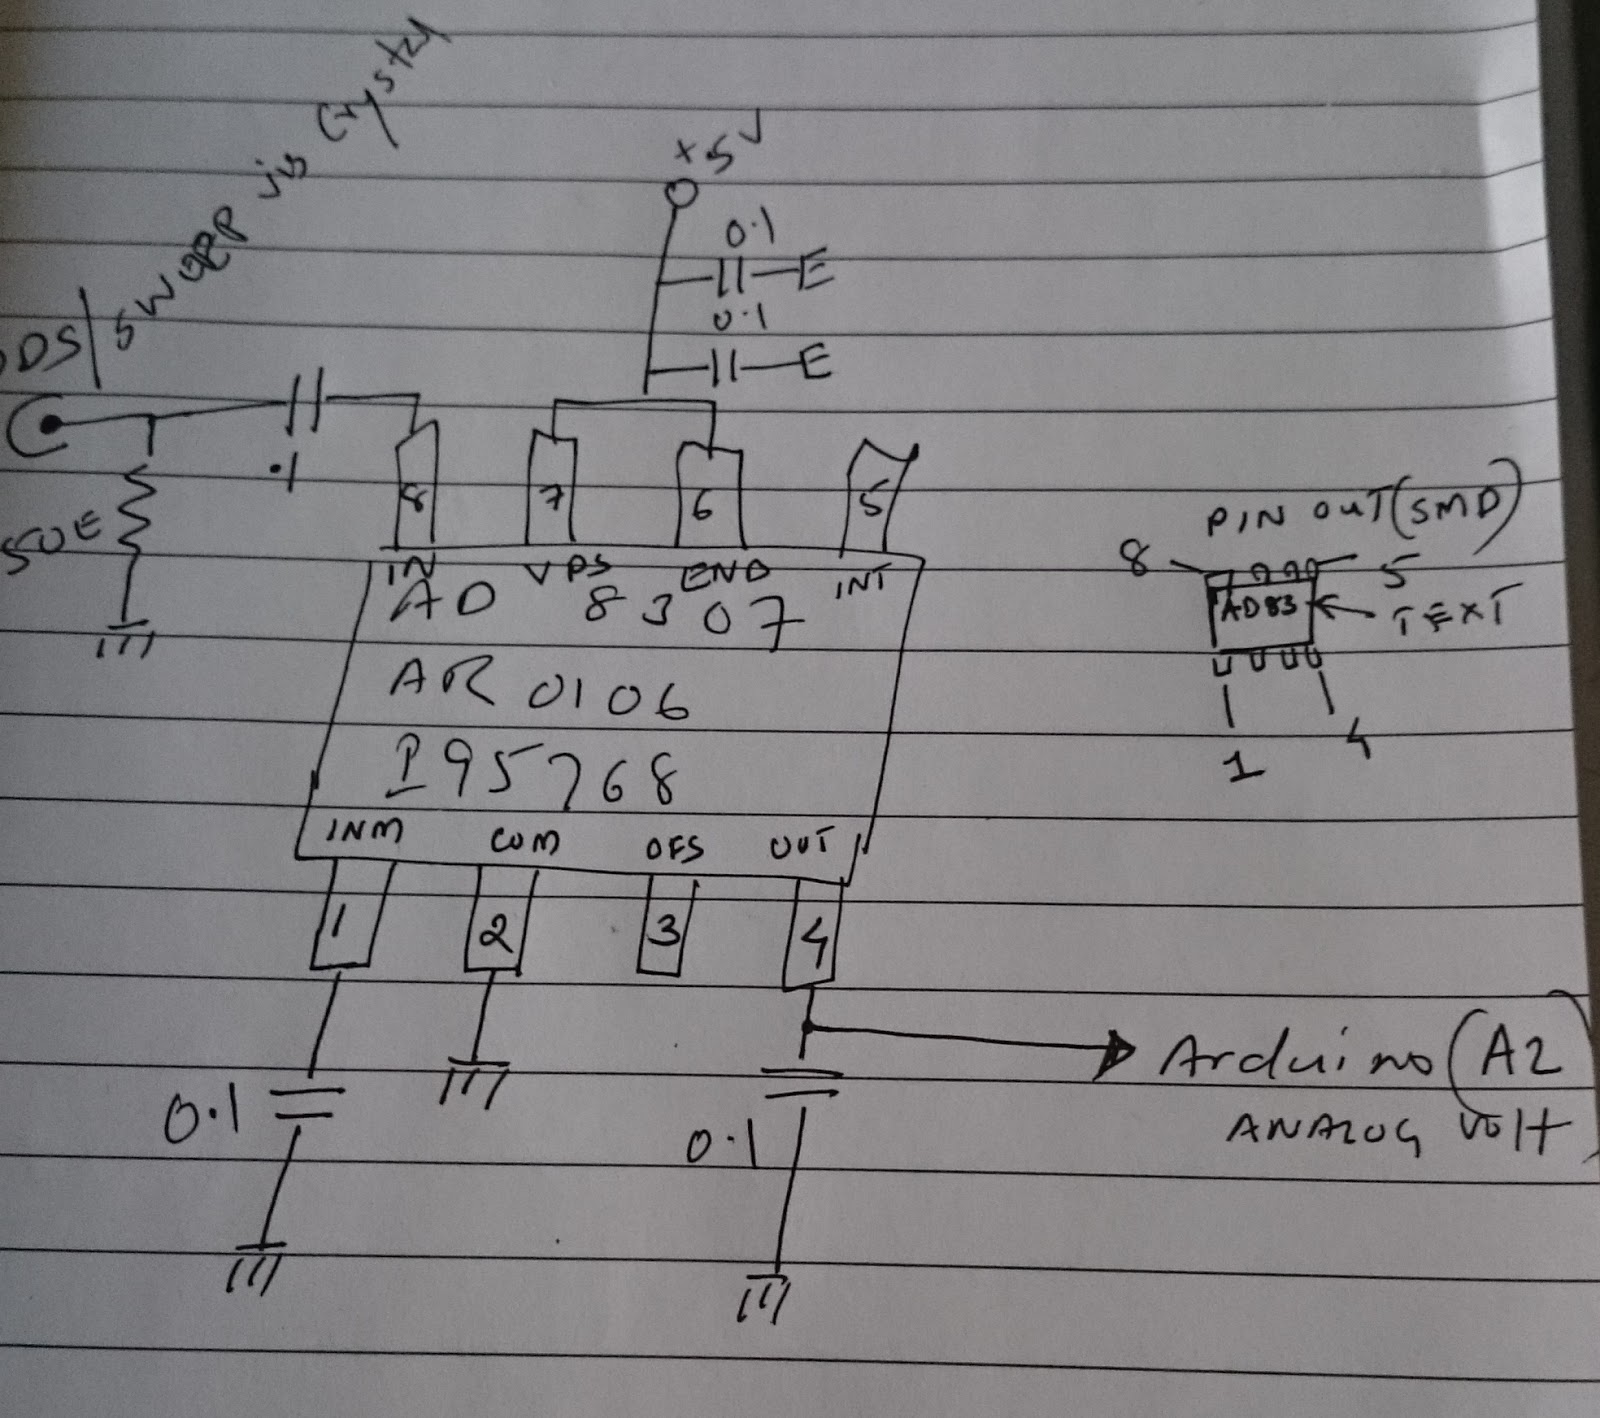 DDS/SWEEP jig Crystal
+5V
0.1
E
0.1
E
.1
50E
8 7 6 5
IN VPS ENB INT
AD 8307
AR 0106
I95768
INM COM OFS OUT
1 2 3 4
0.1
0.1
Arduino (A2
ANALOG VOLT
PIN OUT (SMD)
8 5
AD83 TEXT
1 4